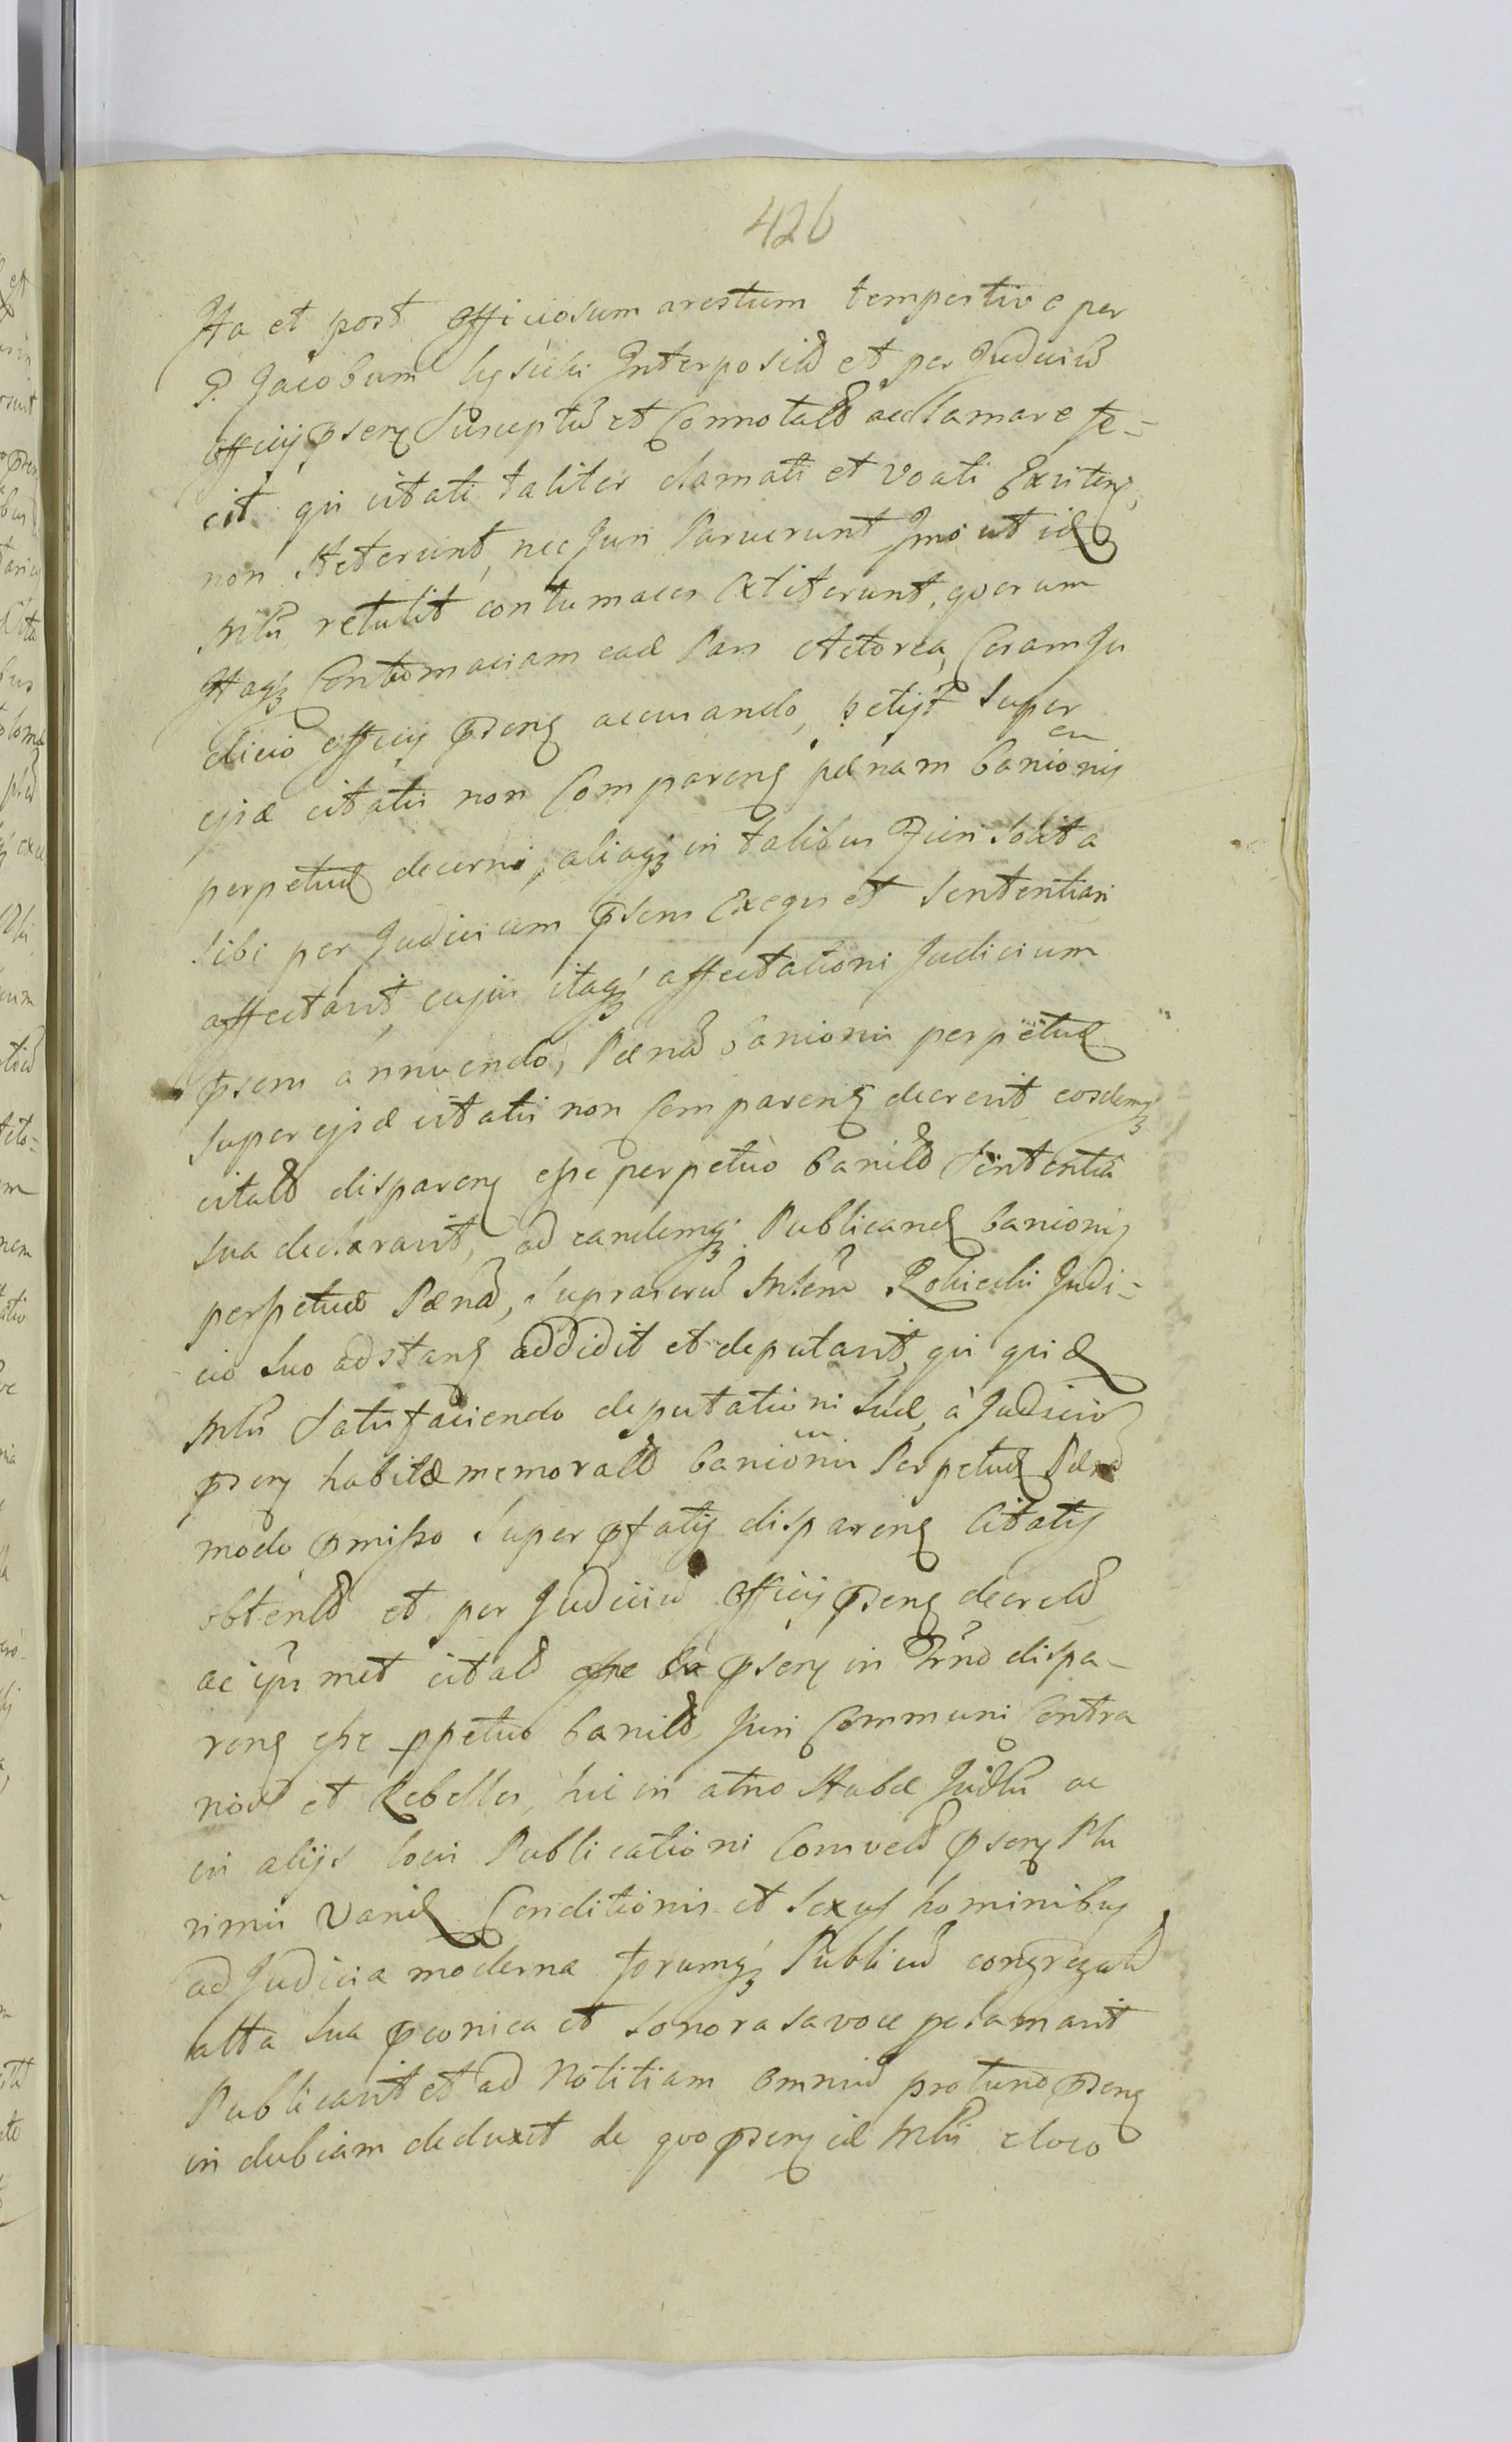 426
Ita et post officiosum arestum tempestive per
P. Jacobum Interposit et per Judiciu
officij psens Susceptu et Connotat acclamare fe-
cit qui citati taliter clamati et vocati Existens
non steterunt, nec Juri Paruerunt Imo ut id
Mlis retulit contumaces extiterunt, quorum
Itaq Contumaciam ead Pars Actorea, Coram Ju
dicio officij psens accusando, petijt super
ejsd citatis non Comparens pænam banionis
perpetuæ decerni, aliaq in talibus Fieri solita
sibi per Judicium psens exequi et Sententiari
affectavit, cujus itaq affectationi Judicium
psens annuendo, Pæna banionis perpetuæ
super ejsd citatis non Comparens decrevit eosdemq
citat disparens esse perpetuo banit Sententia
sua declaravit, ad eandemq Publicand banionis
perpetuæ Pæna, suprascru Mlem Judi-
cio suo adstans addidit et deputavit, qui quid
Mlis Satisfaciendo deputationi suæ, à Judicio
psens habitæ memorat banionis Perpetuæ Pæna
modo pmisso super pfatis disparens Citatis
obtent et per Judiciu officij psens decret
ac ipsmet citat psens in Trno dispa-
rens esse ppetuo banit, Juri Communi Contra
rios et Rebelles, hic in atrio Stubæ Judlis ac
in alijs locis Publicationi Consuet psens Plu
rimis Variæ Conditionis et sexus hominibus
ad Judicia moderna forumq Publicu congregat
alta sua pconica et sonorosa voce pclamavit
Publicavit et ad Notitiam omniu protunc psens
in dubiam deduxit de quo psens id Mlis